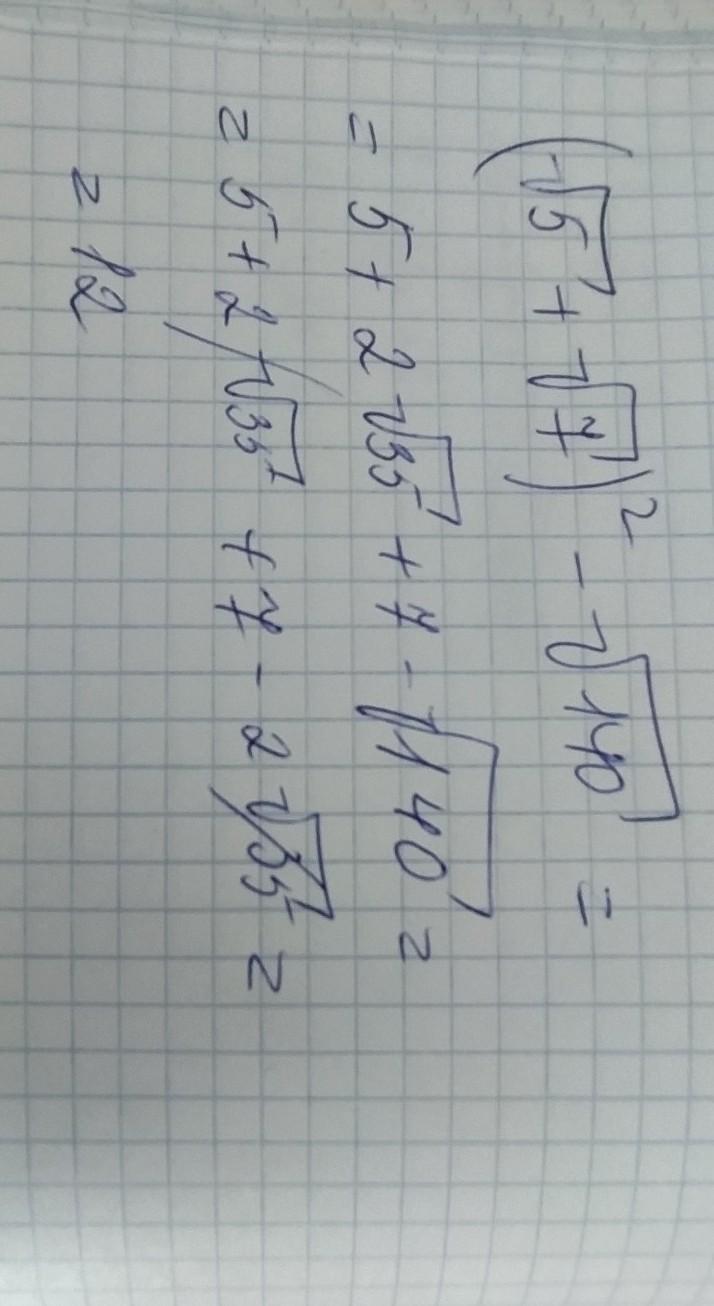 (√5 + √7)² - √140 =
= 5 + 2√35 + 7 - √140 =
= 5 + 2√35 + 7 - 2√35 =
= 12